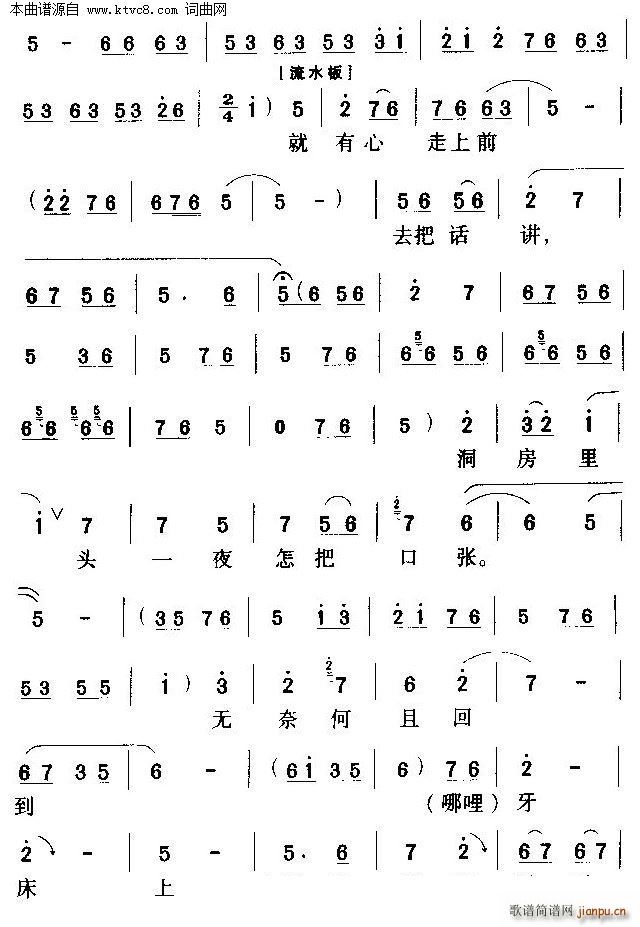 本曲谱源自 www.ktvc8.com 词曲网
5 - 66 63 | 53 63 53 31 | 21 2 76 63 |
[流水板]
53 63 53 26 | 2/4 1 ) 5 | 2 76 | 76 63 | 5 - |
就 有心 走上前
( 22 76 | 676 5 | 5 - ) | 56 56 | 2 7 |
去把 话 讲,
67 56 | 5. 6 | 5 ( 6 56 | 2 7 | 67 56 |
5 36 | 5 76 | 5 76 | 6 5 6 56 | 6 5 6 56 |
6 5 6 5 6 5 6 | 76 5 | 0 76 | 5 ) 2 | 32 1 |
洞 房 里
1 ∨ 7 | 7 5 | 7 56 | 2 7 6 | 6 5 |
头 一 夜 怎 把 口 张。
5 - | ( 35 76 | 5 13 | 21 76 | 5 76 |
53 55 | 1 ) 3 | 2 2 7 | 6 2 | 7 - |
无 奈 何 且 回
67 35 | 6 - | ( 61 35 | 6 ) 76 | 2 - |
到 (哪哩) 牙
2 - | 5 - | 5. 6 | 7 2 | 67 67 |
床 上
歌谱简谱网 jianpu.cn